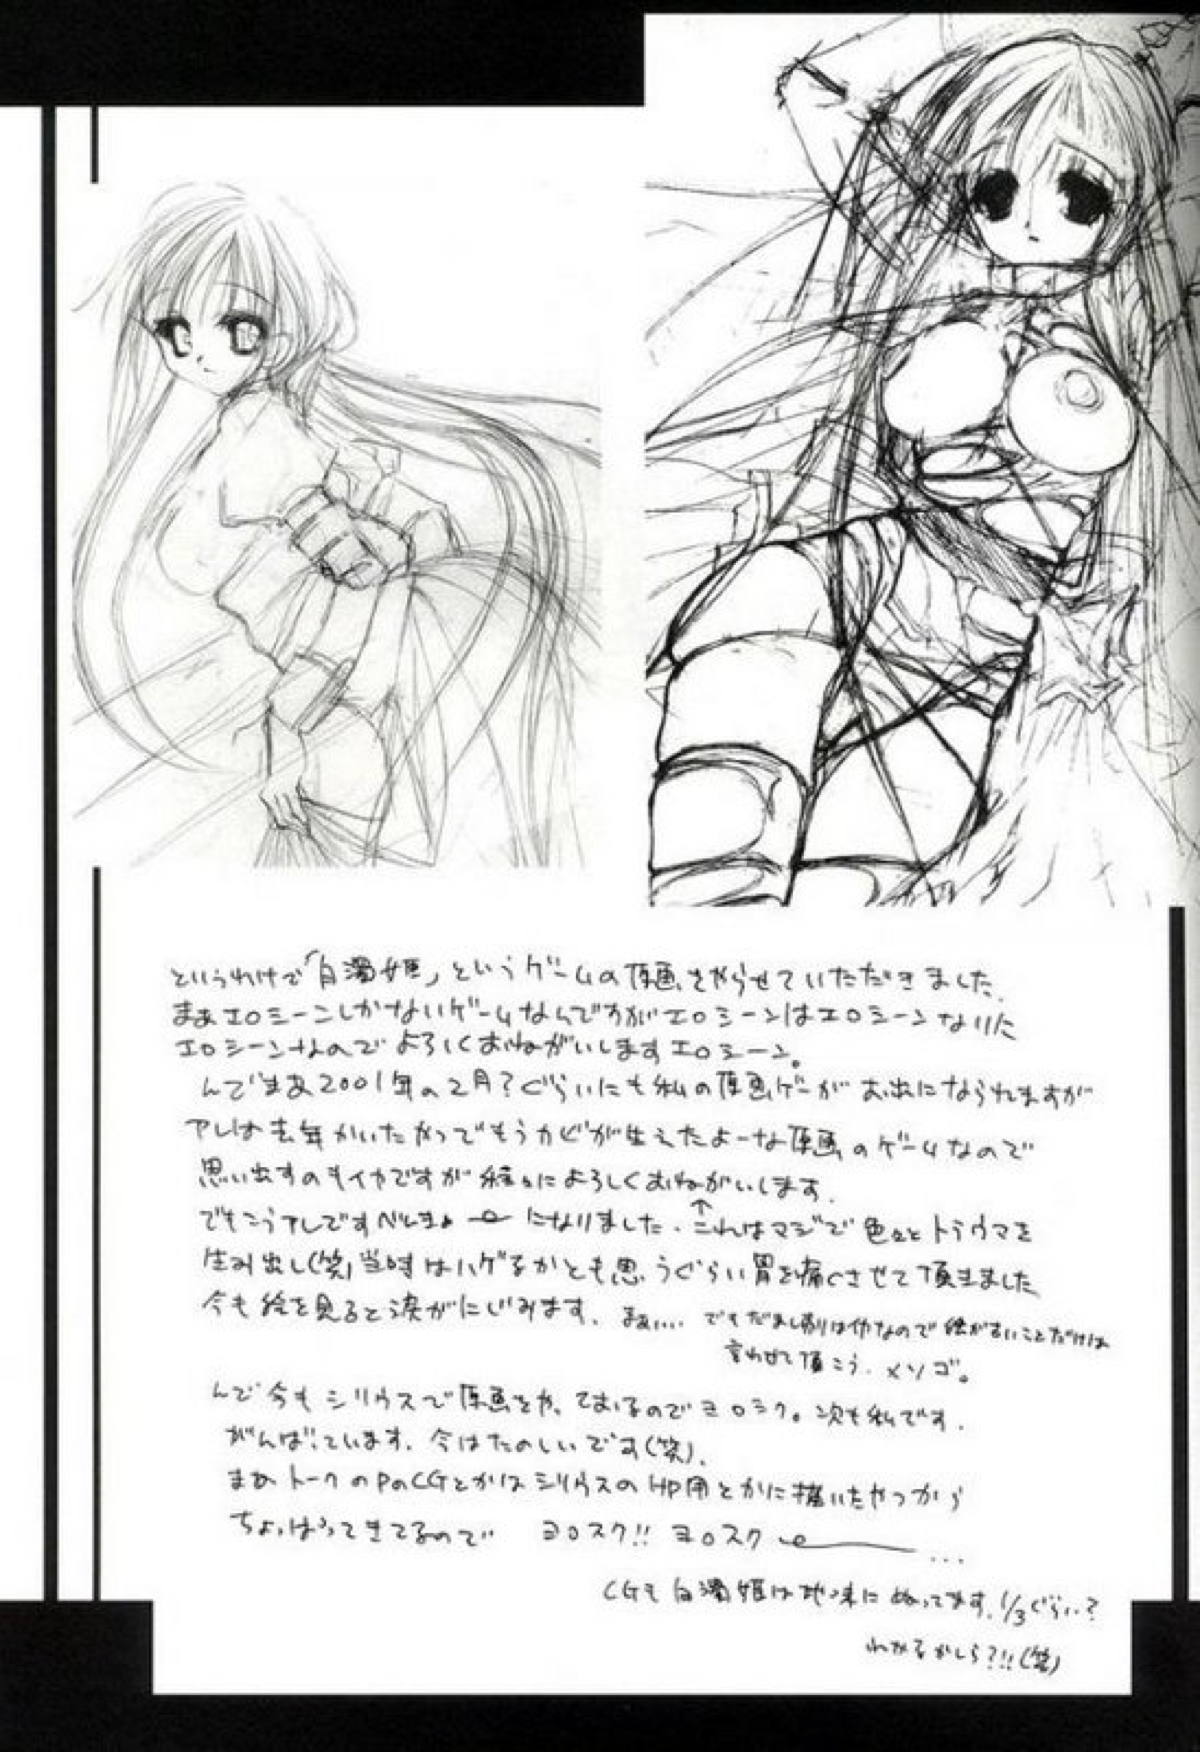 というわけで「白濁姫」というゲームの原画をやらせていただきました。
まぁエロシーンしかないゲームなんですがエロシーンはエロシーンなりに
エロシーンなのでよろしくおねがいしますエロシーン。
んでまあ2001年の2月?ぐらいにも私の原画ゲーがお出になられますが
アレは去年かいたやつでもうカビが生えたよーな原画のゲームなので
思い出すのもイヤですが 末によろしくおねがいします。
でもこうアレです になりました。↑これはマジで色々とトラウマを
生み出し(笑)当時はハゲるかとも思うぐらい胃を痛くさせて頂きました
今も絵を見ると涙がにじみます。まぁ…。でも は なので絵が古いことだけは
言わせて頂こう。メソゴ。
んで今もシリウスで原画をやっておるのでヨロシク。次も私です。
がんばっています。今はたのしいです(笑)。
まあトークのPのCGとかはシリウスのHP用とかに描いたやつから
ちょっぱってきてるので ヨロスク!! ヨロスク ...
CGも白濁姫は地味にぬってます。1/3ぐらい?
わかるかしら?!!(笑)